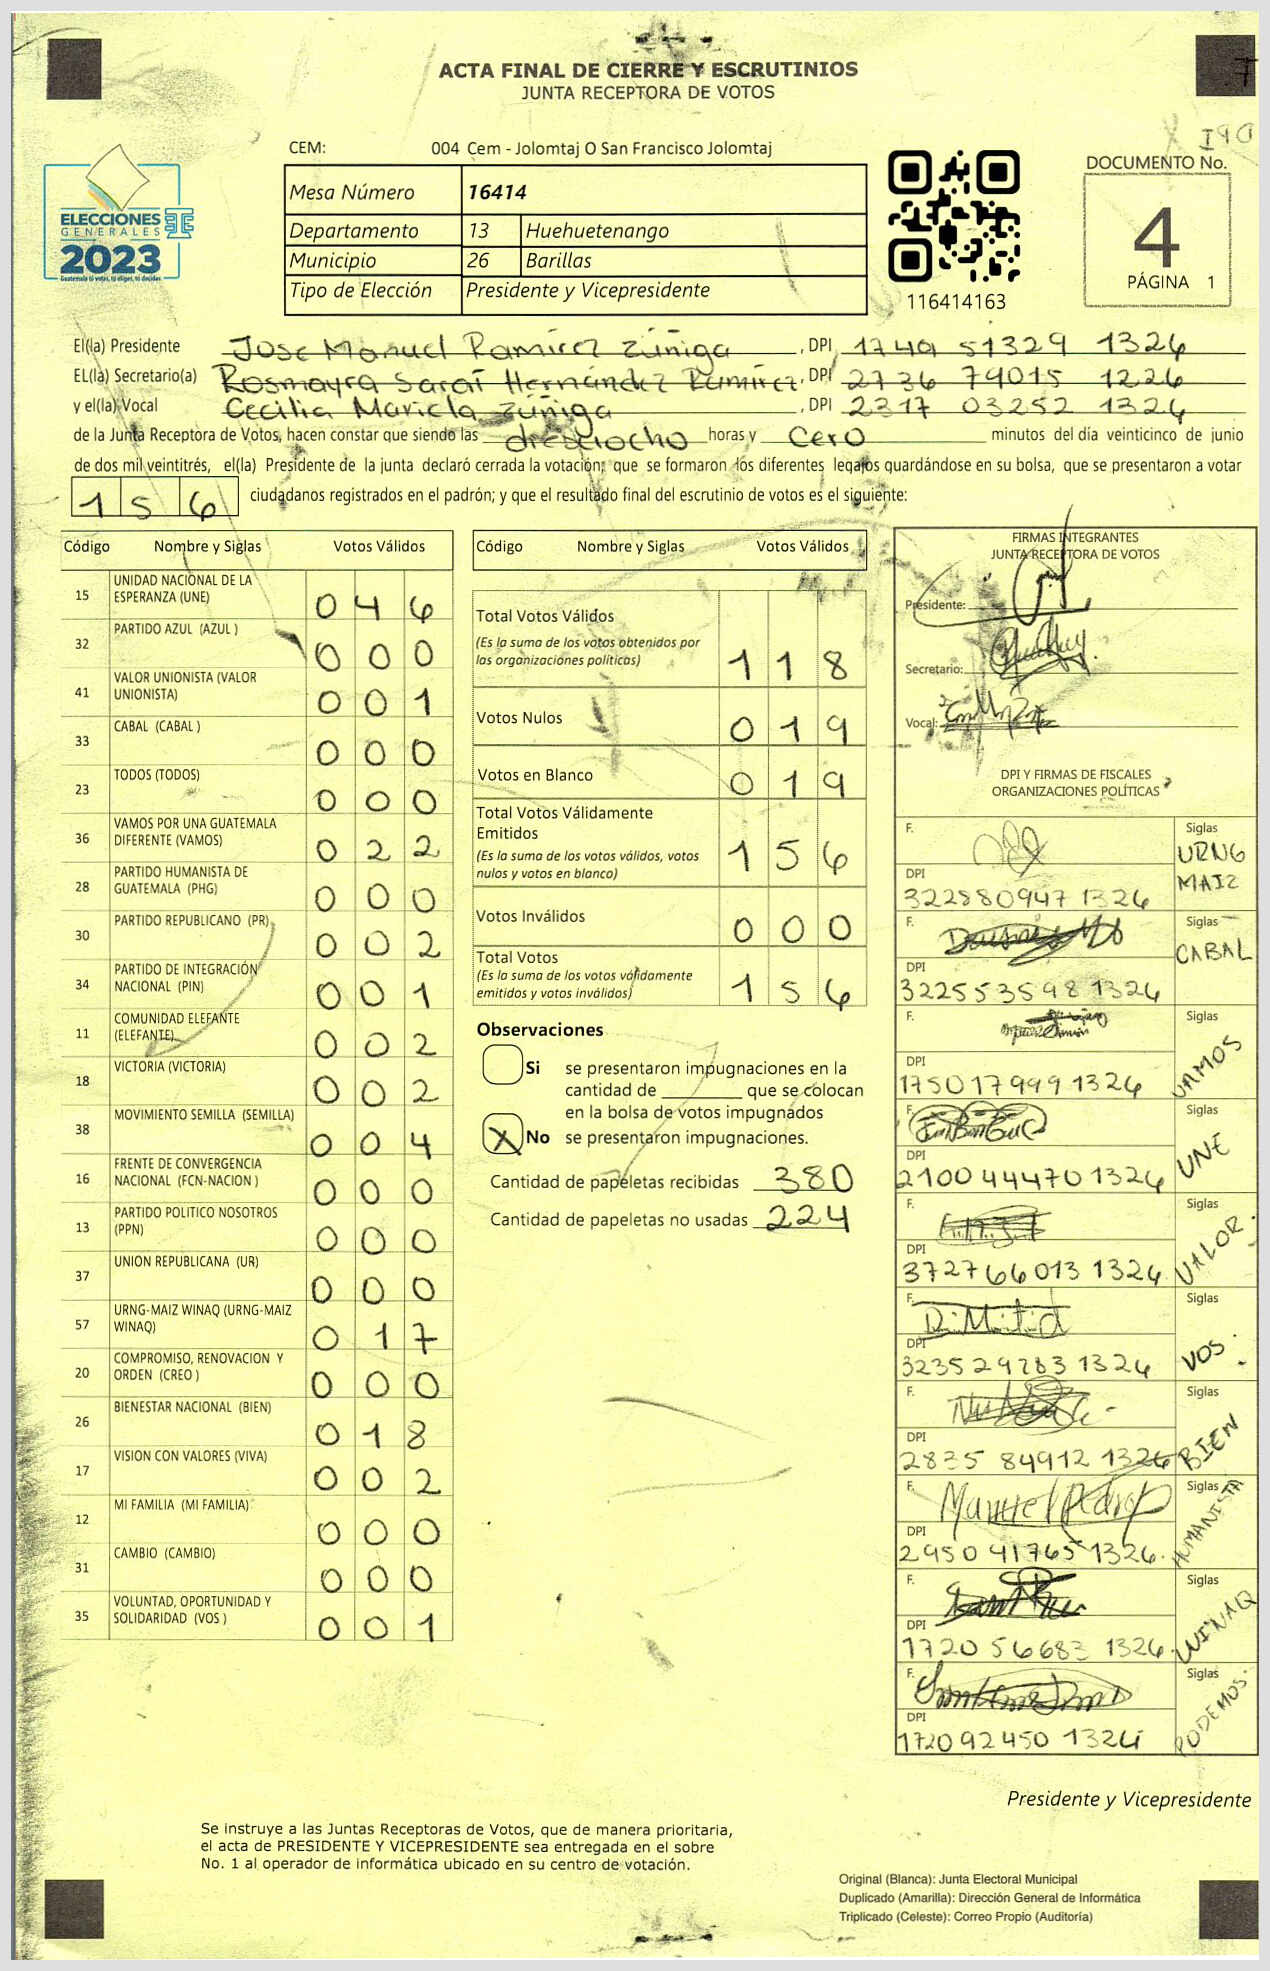 ACTA FINAL DE CIERRE Y ESCRUTINIOS
JUNTA RECEPTORA DE VOTOS
CEM: 004 Cem - Jolomtaj O San Francisco Jolomtaj
ELECCIONES
GENERALES
2023
Guatemala tú votas, tú eliges, tú decides
Mesa Número 16414
Departamento 13 Huehuetenango
Municipio 26 Barillas
Tipo de Elección Presidente y Vicepresidente
116414163
190
DOCUMENTO No.
4
PÁGINA 1
7
El(la) Presidente Jose Manuel Ramirez Zúñiga, DPI 1749 51329 1326
EL(la) Secretario(a) Rosmayra Saraí Hernández Ramírez, DPI 2736 79015 1226
y el(la) Vocal Cecilia Mariela Zúñiga, DPI 2317 03252 1326
de la Junta Receptora de Votos, hacen constar que siendo las dieciocho horas y cero minutos del día veinticinco de junio
de dos mil veintitrés, el(la) Presidente de la junta declaró cerrada la votación; que se formaron los diferentes legajos quardándose en su bolsa, que se presentaron a votar
156 ciudadanos registrados en el padrón; y que el resultado final del escrutinio de votos es el siguiente:
Código Nombre y Siglas Votos Válidos
15 UNIDAD NACIONAL DE LA ESPERANZA (UNE) 046
32 PARTIDO AZUL (AZUL ) 000
41 VALOR UNIONISTA (VALOR UNIONISTA) 001
33 CABAL (CABAL ) 000
23 TODOS (TODOS) 000
36 VAMOS POR UNA GUATEMALA DIFERENTE (VAMOS) 022
28 PARTIDO HUMANISTA DE GUATEMALA (PHG) 000
30 PARTIDO REPUBLICANO (PR) 002
34 PARTIDO DE INTEGRACIÓN NACIONAL (PIN) 001
11 COMUNIDAD ELEFANTE (ELEFANTE) 002
18 VICTORIA (VICTORIA) 002
38 MOVIMIENTO SEMILLA (SEMILLA) 004
16 FRENTE DE CONVERGENCIA NACIONAL (FCN-NACION ) 000
13 PARTIDO POLITICO NOSOTROS (PPN) 000
37 UNION REPUBLICANA (UR) 000
57 URNG-MAIZ WINAQ (URNG-MAIZ WINAQ) 017
20 COMPROMISO, RENOVACION Y ORDEN (CREO ) 000
26 BIENESTAR NACIONAL (BIEN) 018
17 VISION CON VALORES (VIVA) 002
12 MI FAMILIA (MI FAMILIA) 000
31 CAMBIO (CAMBIO) 000
35 VOLUNTAD, OPORTUNIDAD Y SOLIDARIDAD (VOS ) 001
Código Nombre y Siglas Votos Válidos
Total Votos Válidos 118
(Es la suma de los votos obtenidos por
las organizaciones políticas)
Votos Nulos 019
Votos en Blanco 019
Total Votos Válidamente
Emitidos 156
(Es la suma de los votos válidos, votos
nulos y votos en blanco)
Votos Inválidos 000
Total Votos 156
(Es la suma de los votos válidamente
emitidos y votos inválidos)
Observaciones
Si se presentaron impugnaciones en la
cantidad de ________ que se colocan
en la bolsa de votos impugnados
X No se presentaron impugnaciones.
Cantidad de papeletas recibidas 380
Cantidad de papeletas no usadas 224
FIRMAS INTEGRANTES
JUNTA RECEPTORA DE VOTOS
Presidente:
Secretario:
Vocal:
DPI Y FIRMAS DE FISCALES
ORGANIZACIONES POLÍTICAS
F. Siglas URNG MAIZ
DPI 322880947 1326
F. Siglas CABAL
DPI 322553598 1326
F. Siglas VAMOS
DPI 175017999 1326
F. Siglas UNE
DPI 2100 44470 1326
F. Siglas VALOR
DPI 372766013 1326
F. Siglas VOS
DPI 323529783 1326
F. Siglas BIEN
DPI 2835 84912 1326
F. Manuel Pedro Siglas HUMANISTA
DPI 2950 41765 1326
F. Siglas WINAQ
DPI 1720 56683 1326
F. Siglas PODEMOS
DPI 172092450 1326
Presidente y Vicepresidente
Se instruye a las Juntas Receptoras de Votos, que de manera prioritaria,
el acta de PRESIDENTE Y VICEPRESIDENTE sea entregada en el sobre
No. 1 al operador de informática ubicado en su centro de votación.
Original (Blanca): Junta Electoral Municipal
Duplicado (Amarilla): Dirección General de Informática
Triplicado (Celeste): Correo Propio (Auditoría)